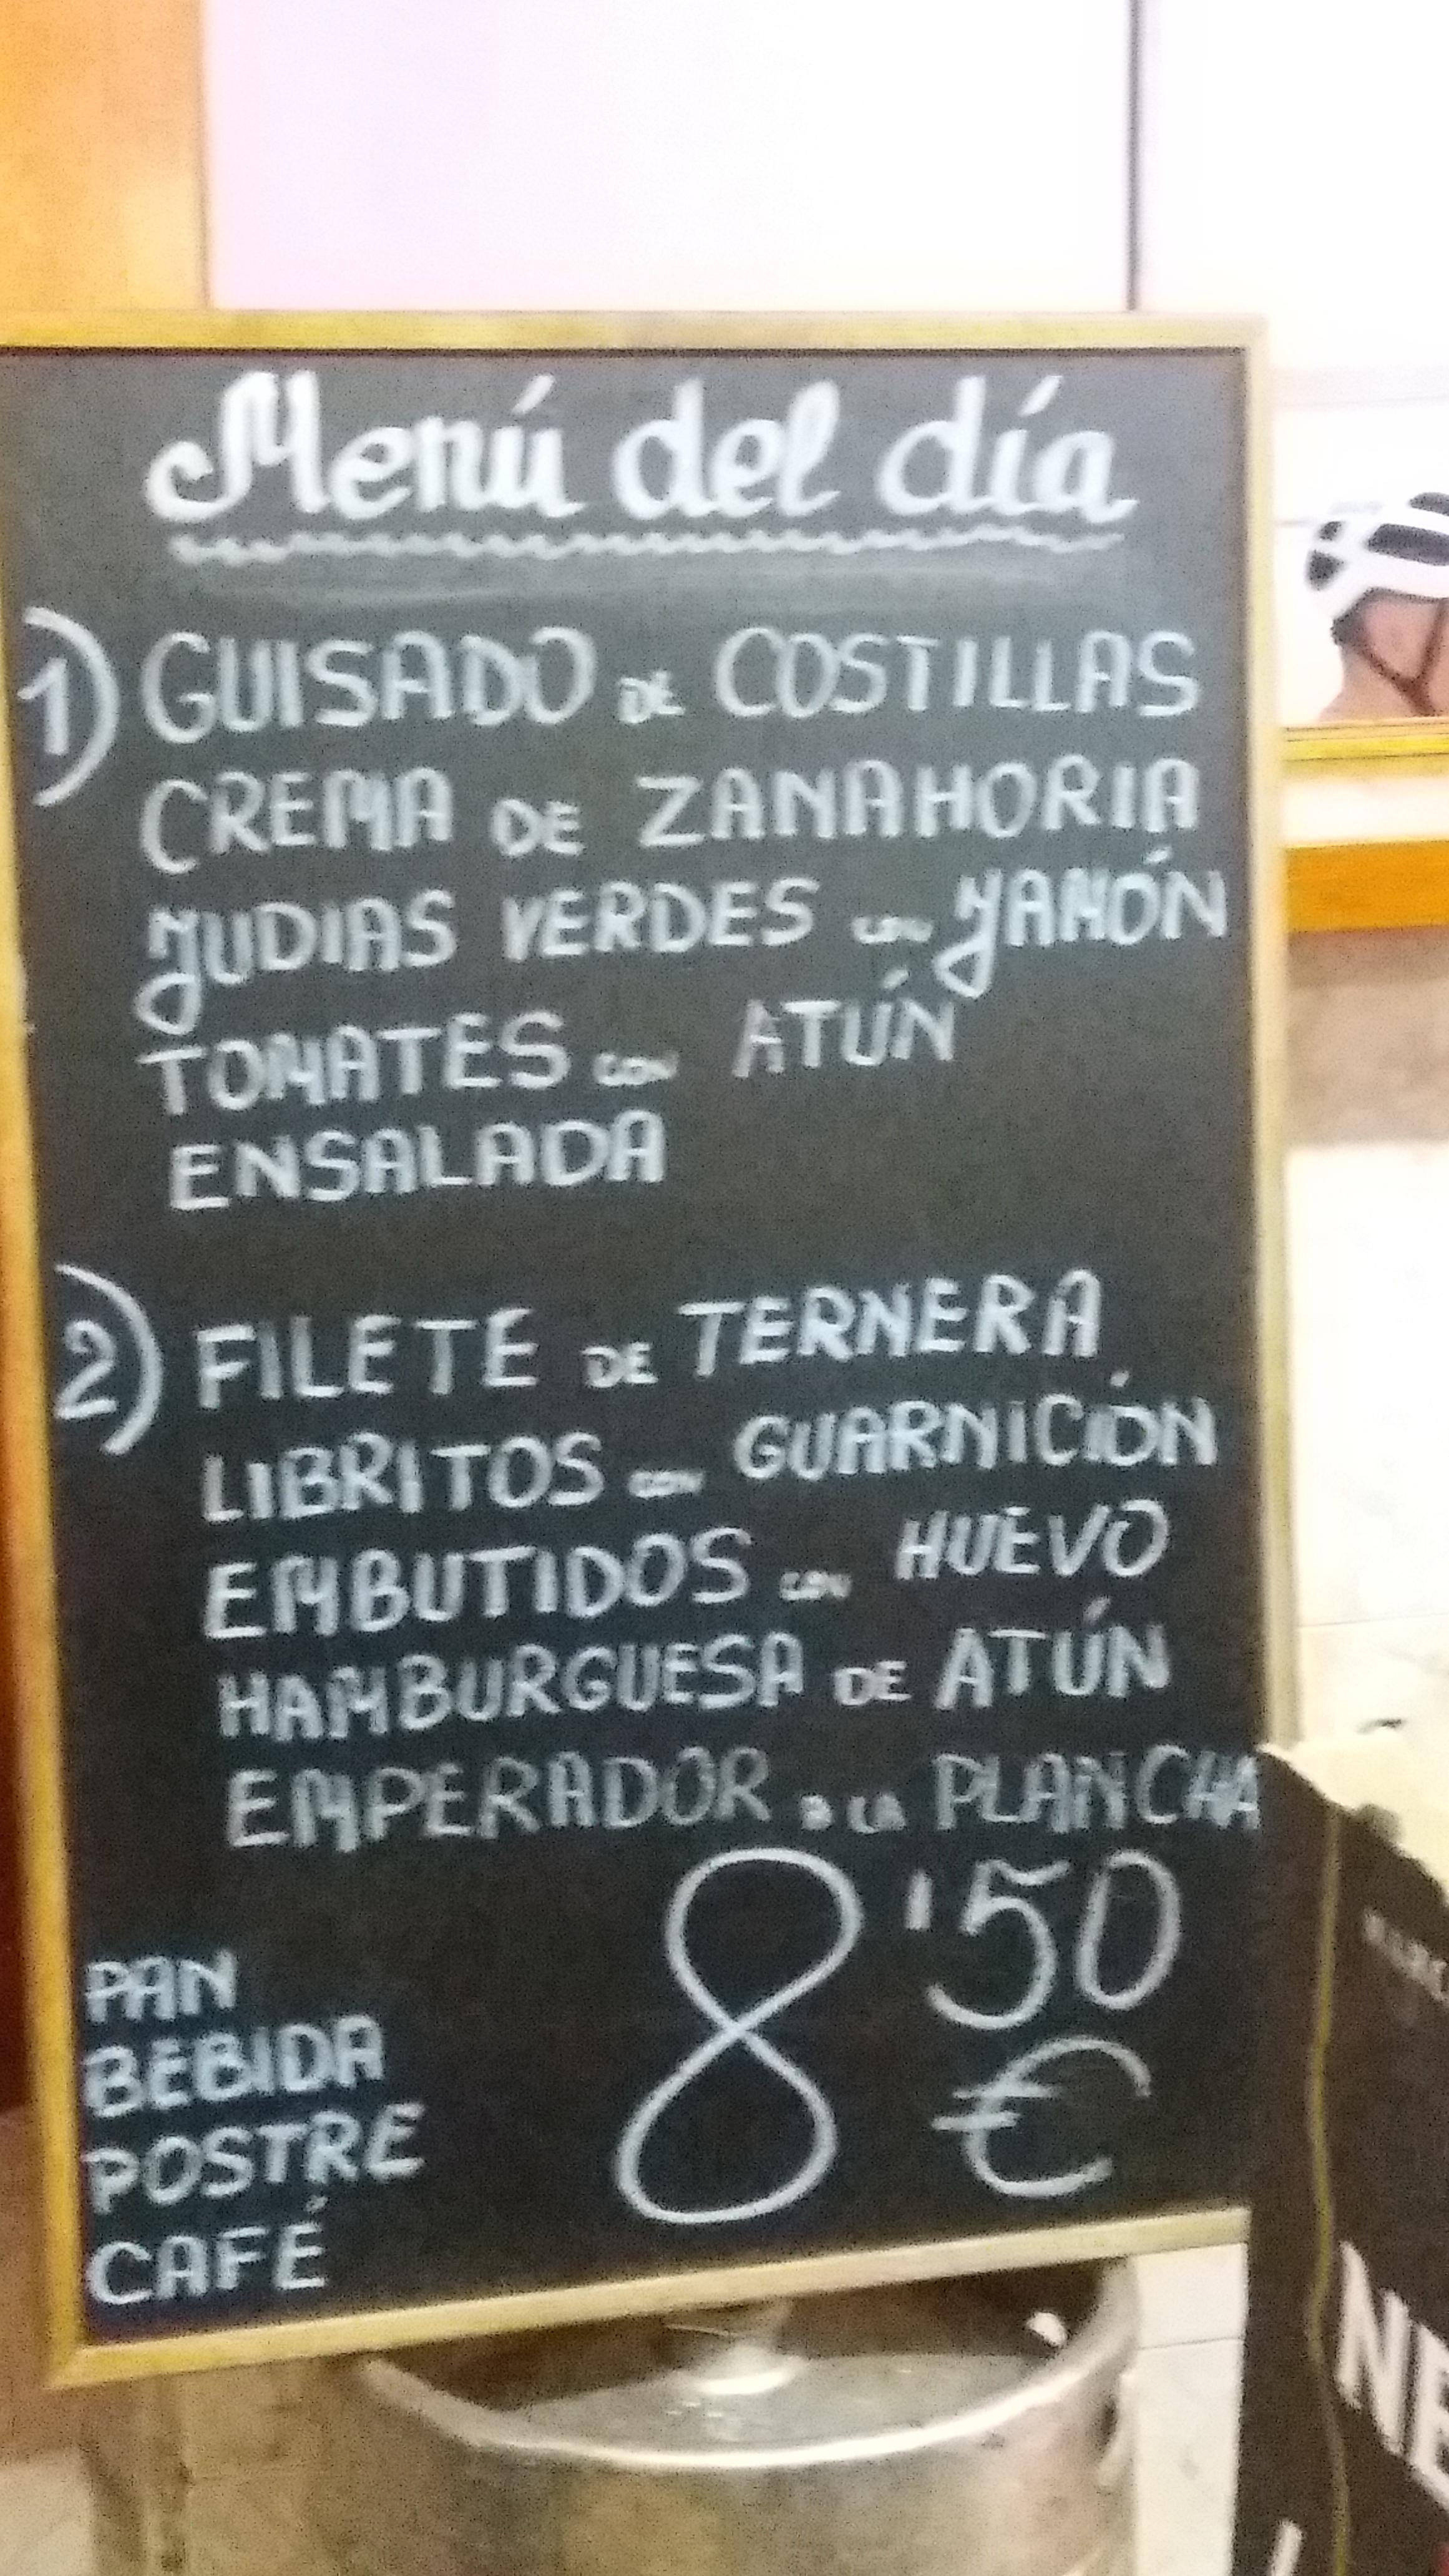 Menú del día
1) GUISADO DE COSTILLAS
CREMA DE ZANAHORIA
JUDIAS VERDES CON JAMÓN
TOMATES CON ATÚN
ENSALADA
2) FILETE DE TERNERA
LIBRITOS CON GUARNICIÓN
EMBUTIDOS CON HUEVO
HAMBURGUESA DE ATÚN
EMPERADOR A LA PLANCHA
8'50
€
PAN
BEBIDA
POSTRE
CAFÉ
NE